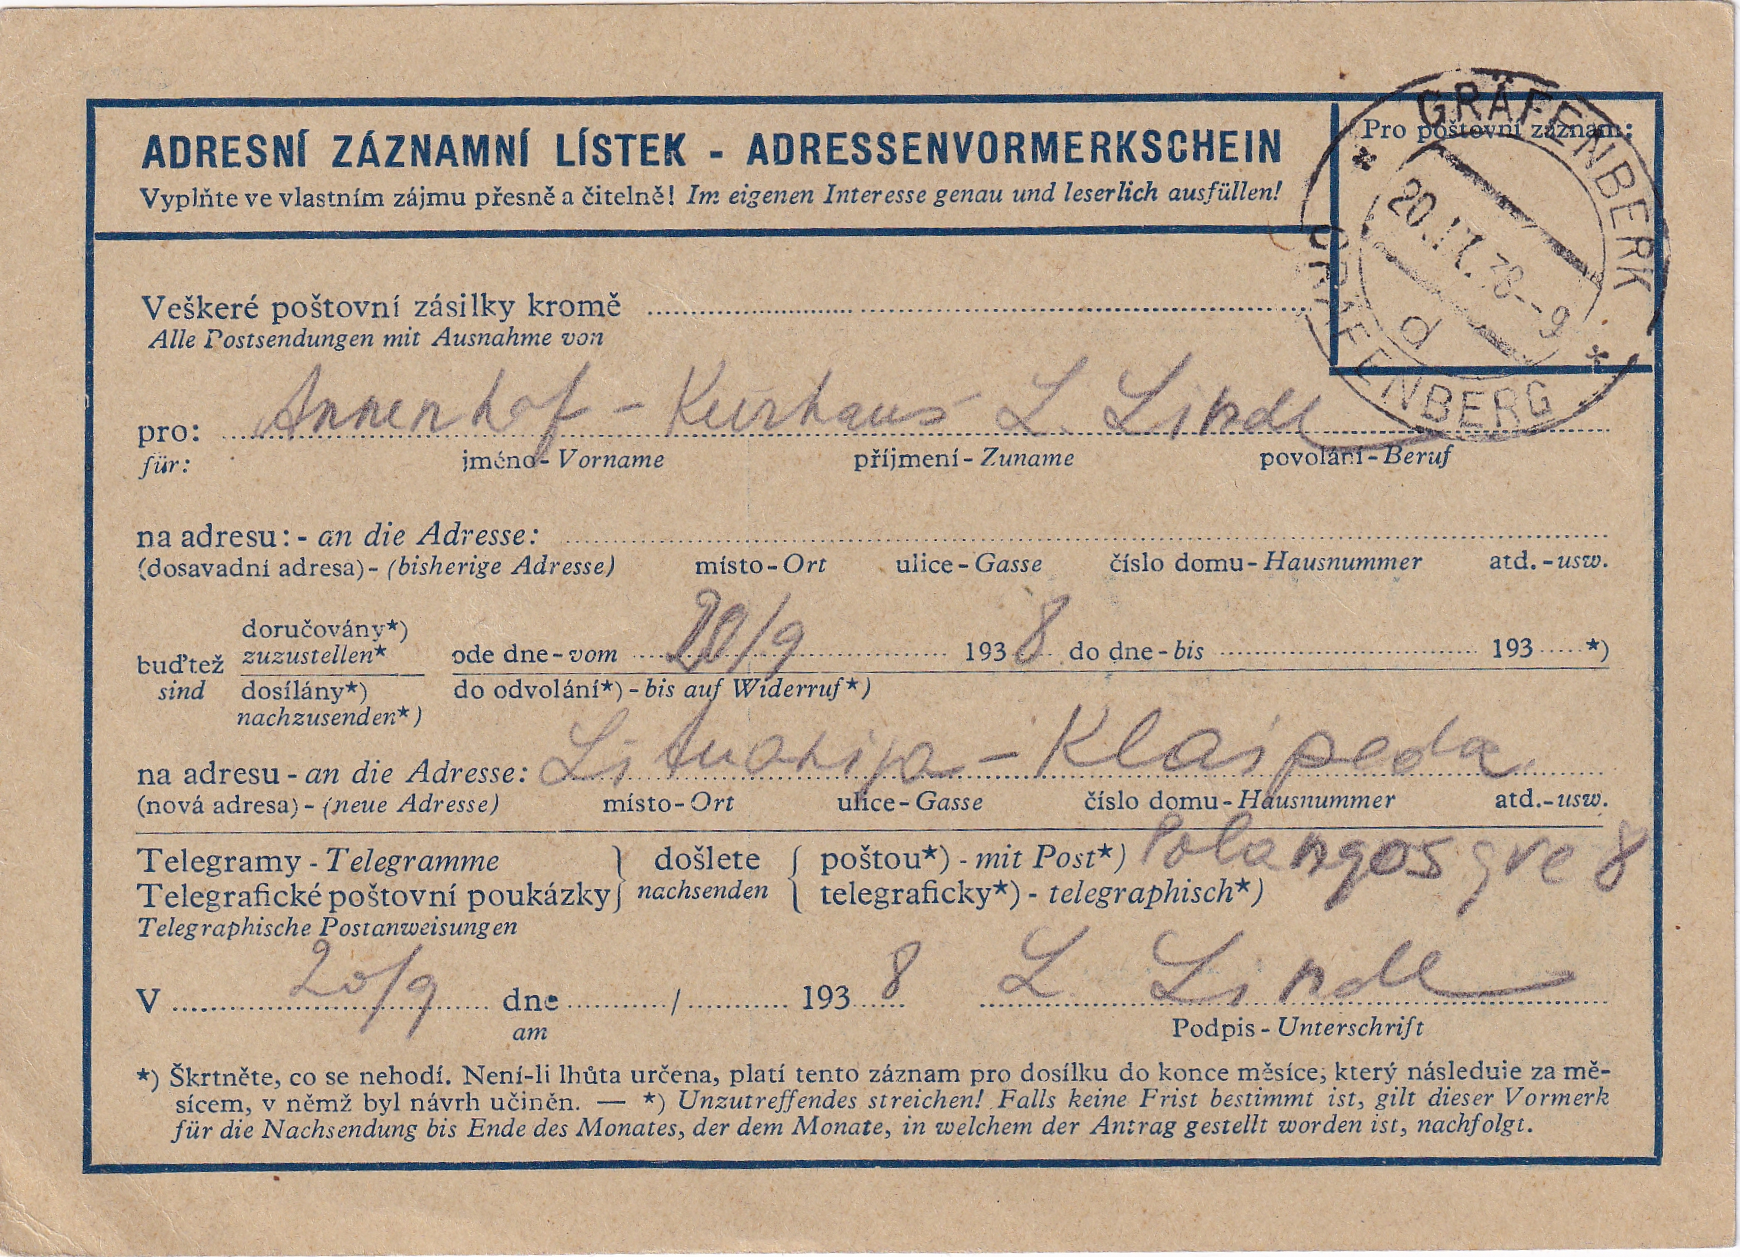 ADRESNÍ ZÁZNAMNÍ LÍSTEK - ADRESSENVORMERKSCHEIN
Vyplňte ve vlastním zájmu přesně a čitelně! Im eigenen Interesse genau und leserlich ausfüllen!
Pro poštovní záznam:
GRÄFENBERK
20.IX.38--9
d
GRÄFENBERG
Veškeré poštovní zásilky kromě
Alle Postsendungen mit Ausnahme von
pro: Annenhof - Kurhaus L. Lindl
für: jméno - Vorname příjmení - Zuname povolání - Beruf
na adresu: - an die Adresse:
(dosavadní adresa) - (bisherige Adresse) místo - Ort ulice - Gasse číslo domu - Hausnummer atd. - usw.
doručovány*)
buďtež zuzustellen* ode dne - vom 20/9 1938 do dne - bis 193 *)
sind dosílány*) do odvolání*) - bis auf Widerruf*)
nachzusenden*)
na adresu - an die Adresse: Lituanija - Klaipeda
(nová adresa) - (neue Adresse) místo - Ort ulice - Gasse číslo domu - Hausnummer atd. - usw.
Telegramy - Telegramme došlete poštou*) - mit Post*) Polangos gve 8
Telegrafické poštovní poukázky nachsenden telegraficky*) - telegraphisch*)
Telegraphische Postanweisungen
V 20/9 dne / 1938 L Lindl
am Podpis - Unterschrift
*) Škrtněte, co se nehodí. Není-li lhůta určena, platí tento záznam pro dosílku do konce měsíce, který následuje za mě-
sícem, v němž byl návrh učiněn. — *) Unzutreffendes streichen! Falls keine Frist bestimmt ist, gilt dieser Vormerk
für die Nachsendung bis Ende des Monates, der dem Monate, in welchem der Antrag gestellt worden ist, nachfolgt.